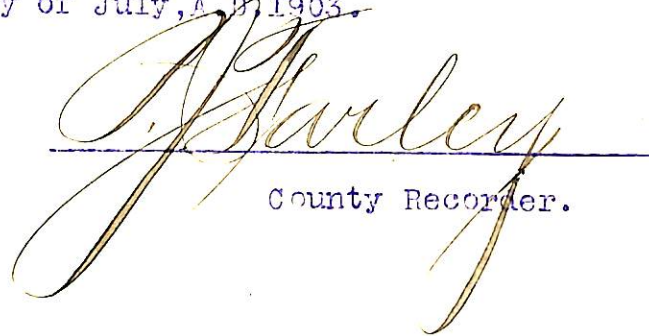 y of July, A.D. 1903.
Farley
County Recorder.